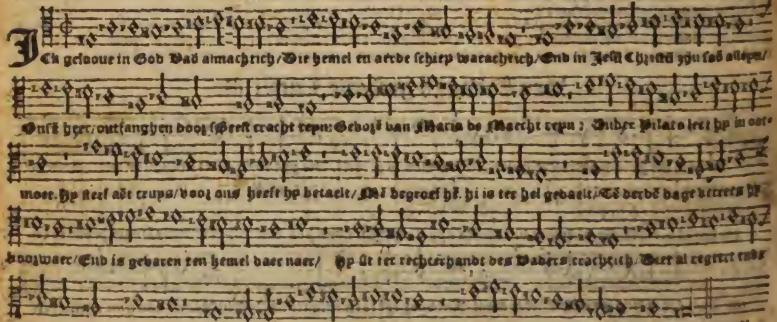 ICk geloove in God Vad almachtich/Die hemel en aerde schiep warachtich/End in Jesū Christū zijn soō alleyn/
Onsē heer/ontfanghen door sGeest cracht reyn: Geborē van Maria de Maecht reyn: Onder Pilato leet hy in oot-
moet. Hy sterf aēt cruys/voor ons heeft hy betaelt/Mē begroef hē. hi is ter hel gedaelt/Tē derdē dage verrees hy
voorwaer/End is gevaren ten hemel daer naer/ Hy sit ter rechterhandt des Vaders crachtich. Daer al regeret ende